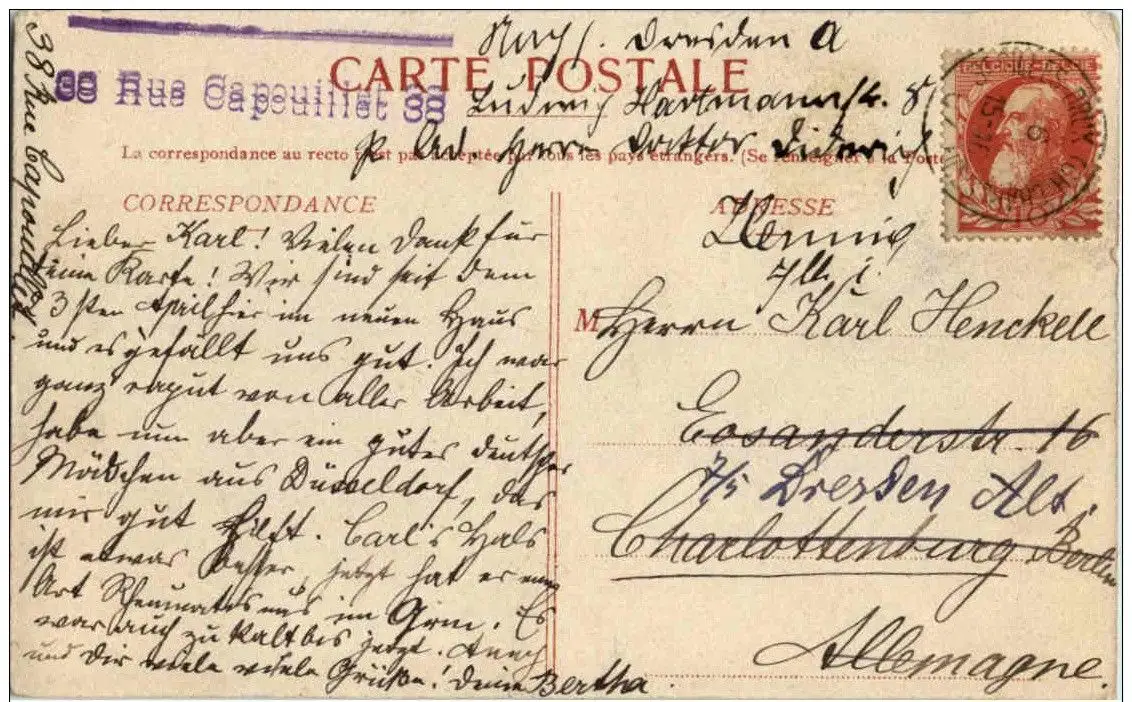 Nach
Dresden A
CARTE POSTALE
38 Rue Capouillet 38
Ludwig Hartmannstr.
Herrn Doktor
La correspondance au recto n'est pas acceptée par tous les pays étrangers. (Se renseigner à la Poste
38 Rue Capouillet
CORRESPONDANCE
Lieber Karl! Vielen Dank für
Deine Karte! Wir sind seit dem
3sten April hier im neuen Haus
und es gefällt uns gut. Ich war
ganz caput von aller Arbeit,
habe nun aber ein gutes deutsches
Mädchen aus Düsseldorf, das
mir gut hilft. Carl's Hals
ist etwas besser, jetzt hat er eine
Art Rheumatismus im Arm. Es
war auch zu kalt bis jetzt.
und Dir viele viele Grüße! Deine Bertha.
ADRESSE
Hennig
M Herrn Karl Henckell
Eosanderstr. 16
Dresden Alt.
Charlottenburg Berlin
Allemagne.
BELGIQUE